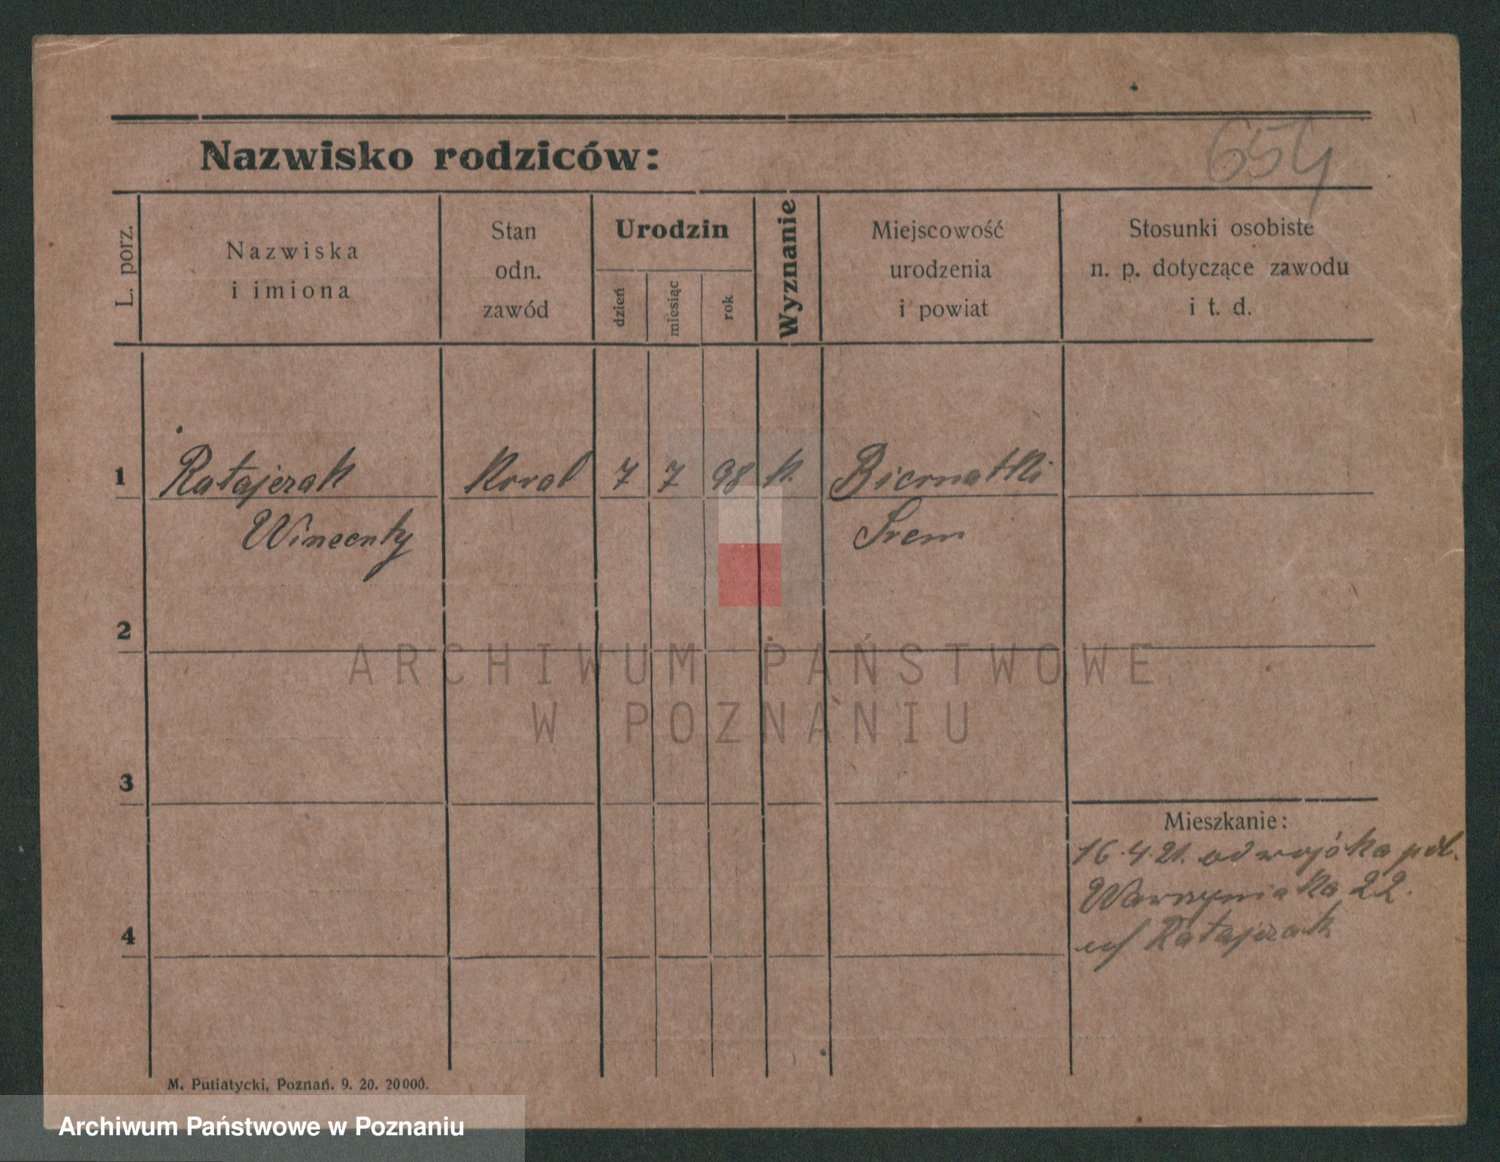 654
Nazwisko rodziców:
L. porz.
Nazwiska
i imiona
Stan
odn.
zawód
Urodzin
dzień
miesiąc
rok
Wyznanie
Miejscowość
urodzenia
i powiat
Stosunki osobiste
n. p. dotyczące zawodu
i t. d.
1
Ratajczak
7
7
98
k.
Biernatki
Wincenty
Śrem
2
ARCHIWUM PAŃSTWOWE
W POZNANIU
3
Mieszkanie:
16.4.21. od wojska pol.
22.
4
Ratajczak
M. Putiatycki, Poznań. 9. 20. 20000.
Archiwum Państwowe w Poznaniu